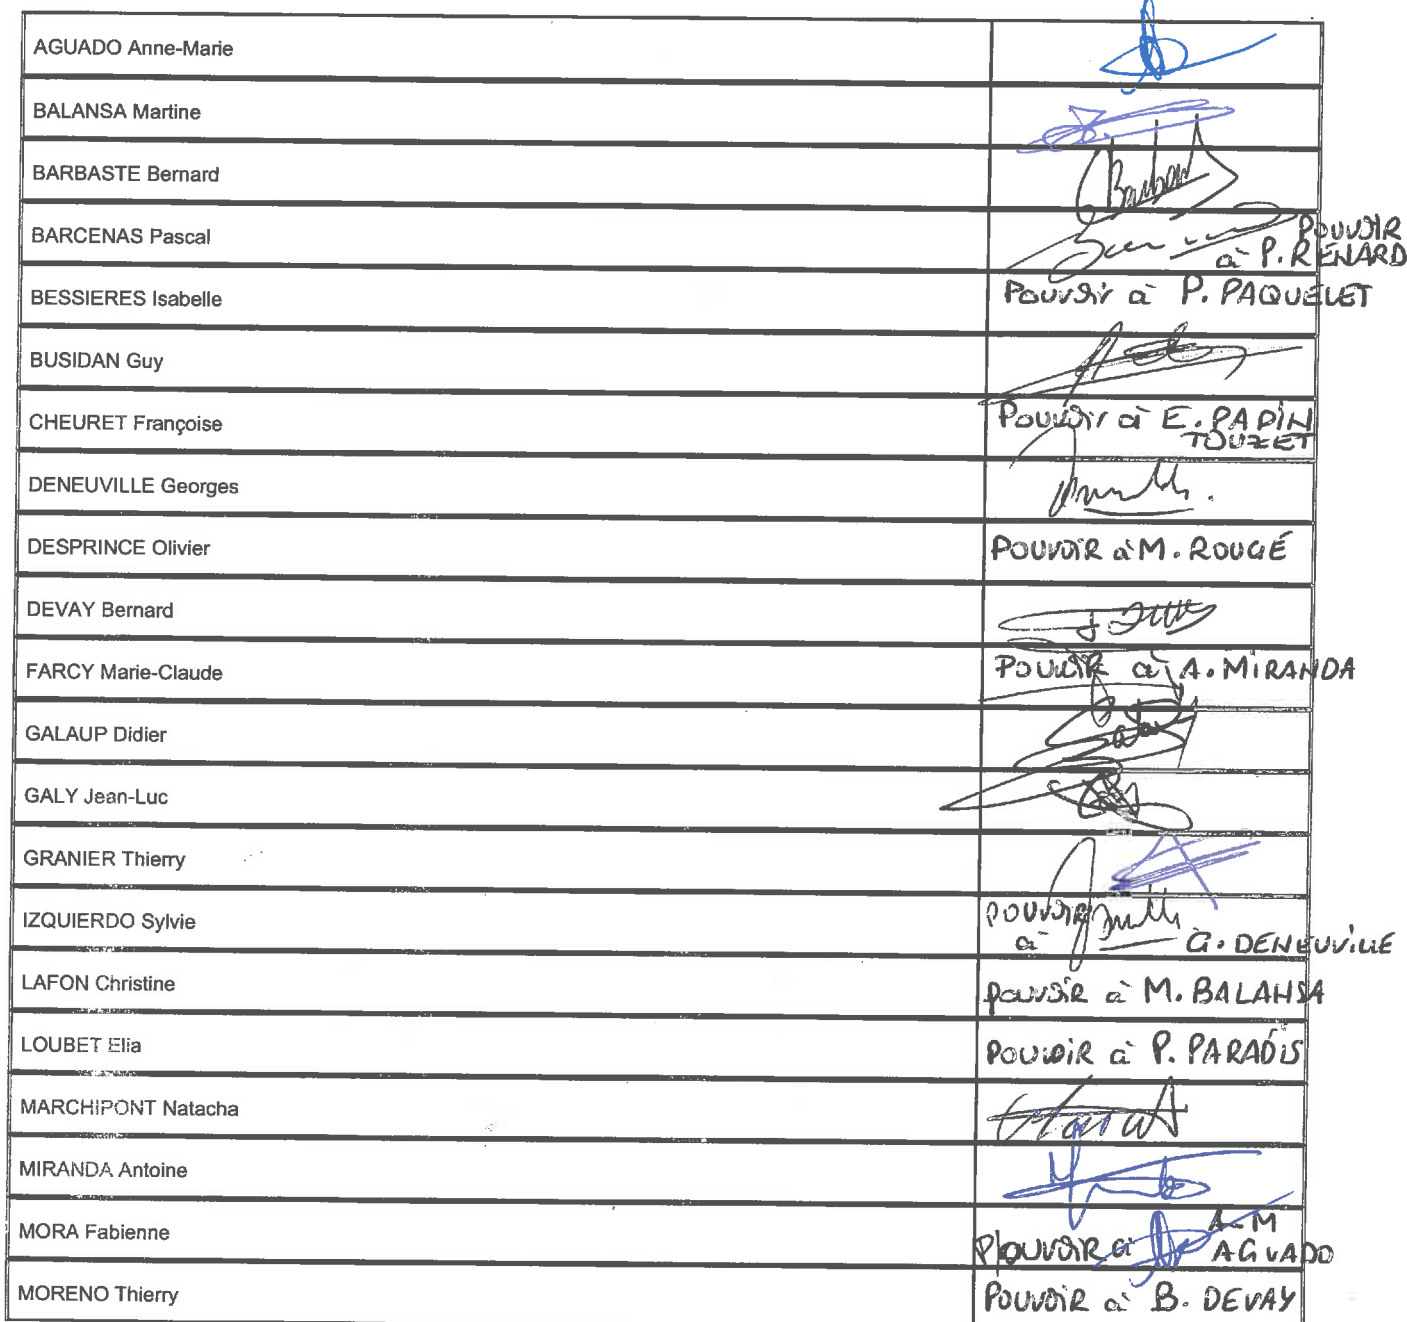 AGUADO Anne-Marie
BALANSA Martine
BARBASTE Bernard
BARCENAS Pascal
POUVOIR
à P. RENARD
BESSIERES Isabelle
Pouvoir à P. PAQUELET
BUSIDAN Guy
CHEURET Françoise
Pouvoir à E. PAPIN
TOUZET
DENEUVILLE Georges
DESPRINCE Olivier
POUVOIR à M. ROUGÉ
DEVAY Bernard
FARCY Marie-Claude
POUVOIR à A. MIRANDA
GALAUP Didier
GALY Jean-Luc
GRANIER Thierry
IZQUIERDO Sylvie
POUVOIR
à G. DENEUVILLE
LAFON Christine
pouvoir à M. BALANSA
LOUBET Elia
POUVOIR à P. PARADIS
MARCHIPONT Natacha
MIRANDA Antoine
MORA Fabienne
A-M
POUVOIR à AGUADO
MORENO Thierry
POUVOIR à B. DEVAY